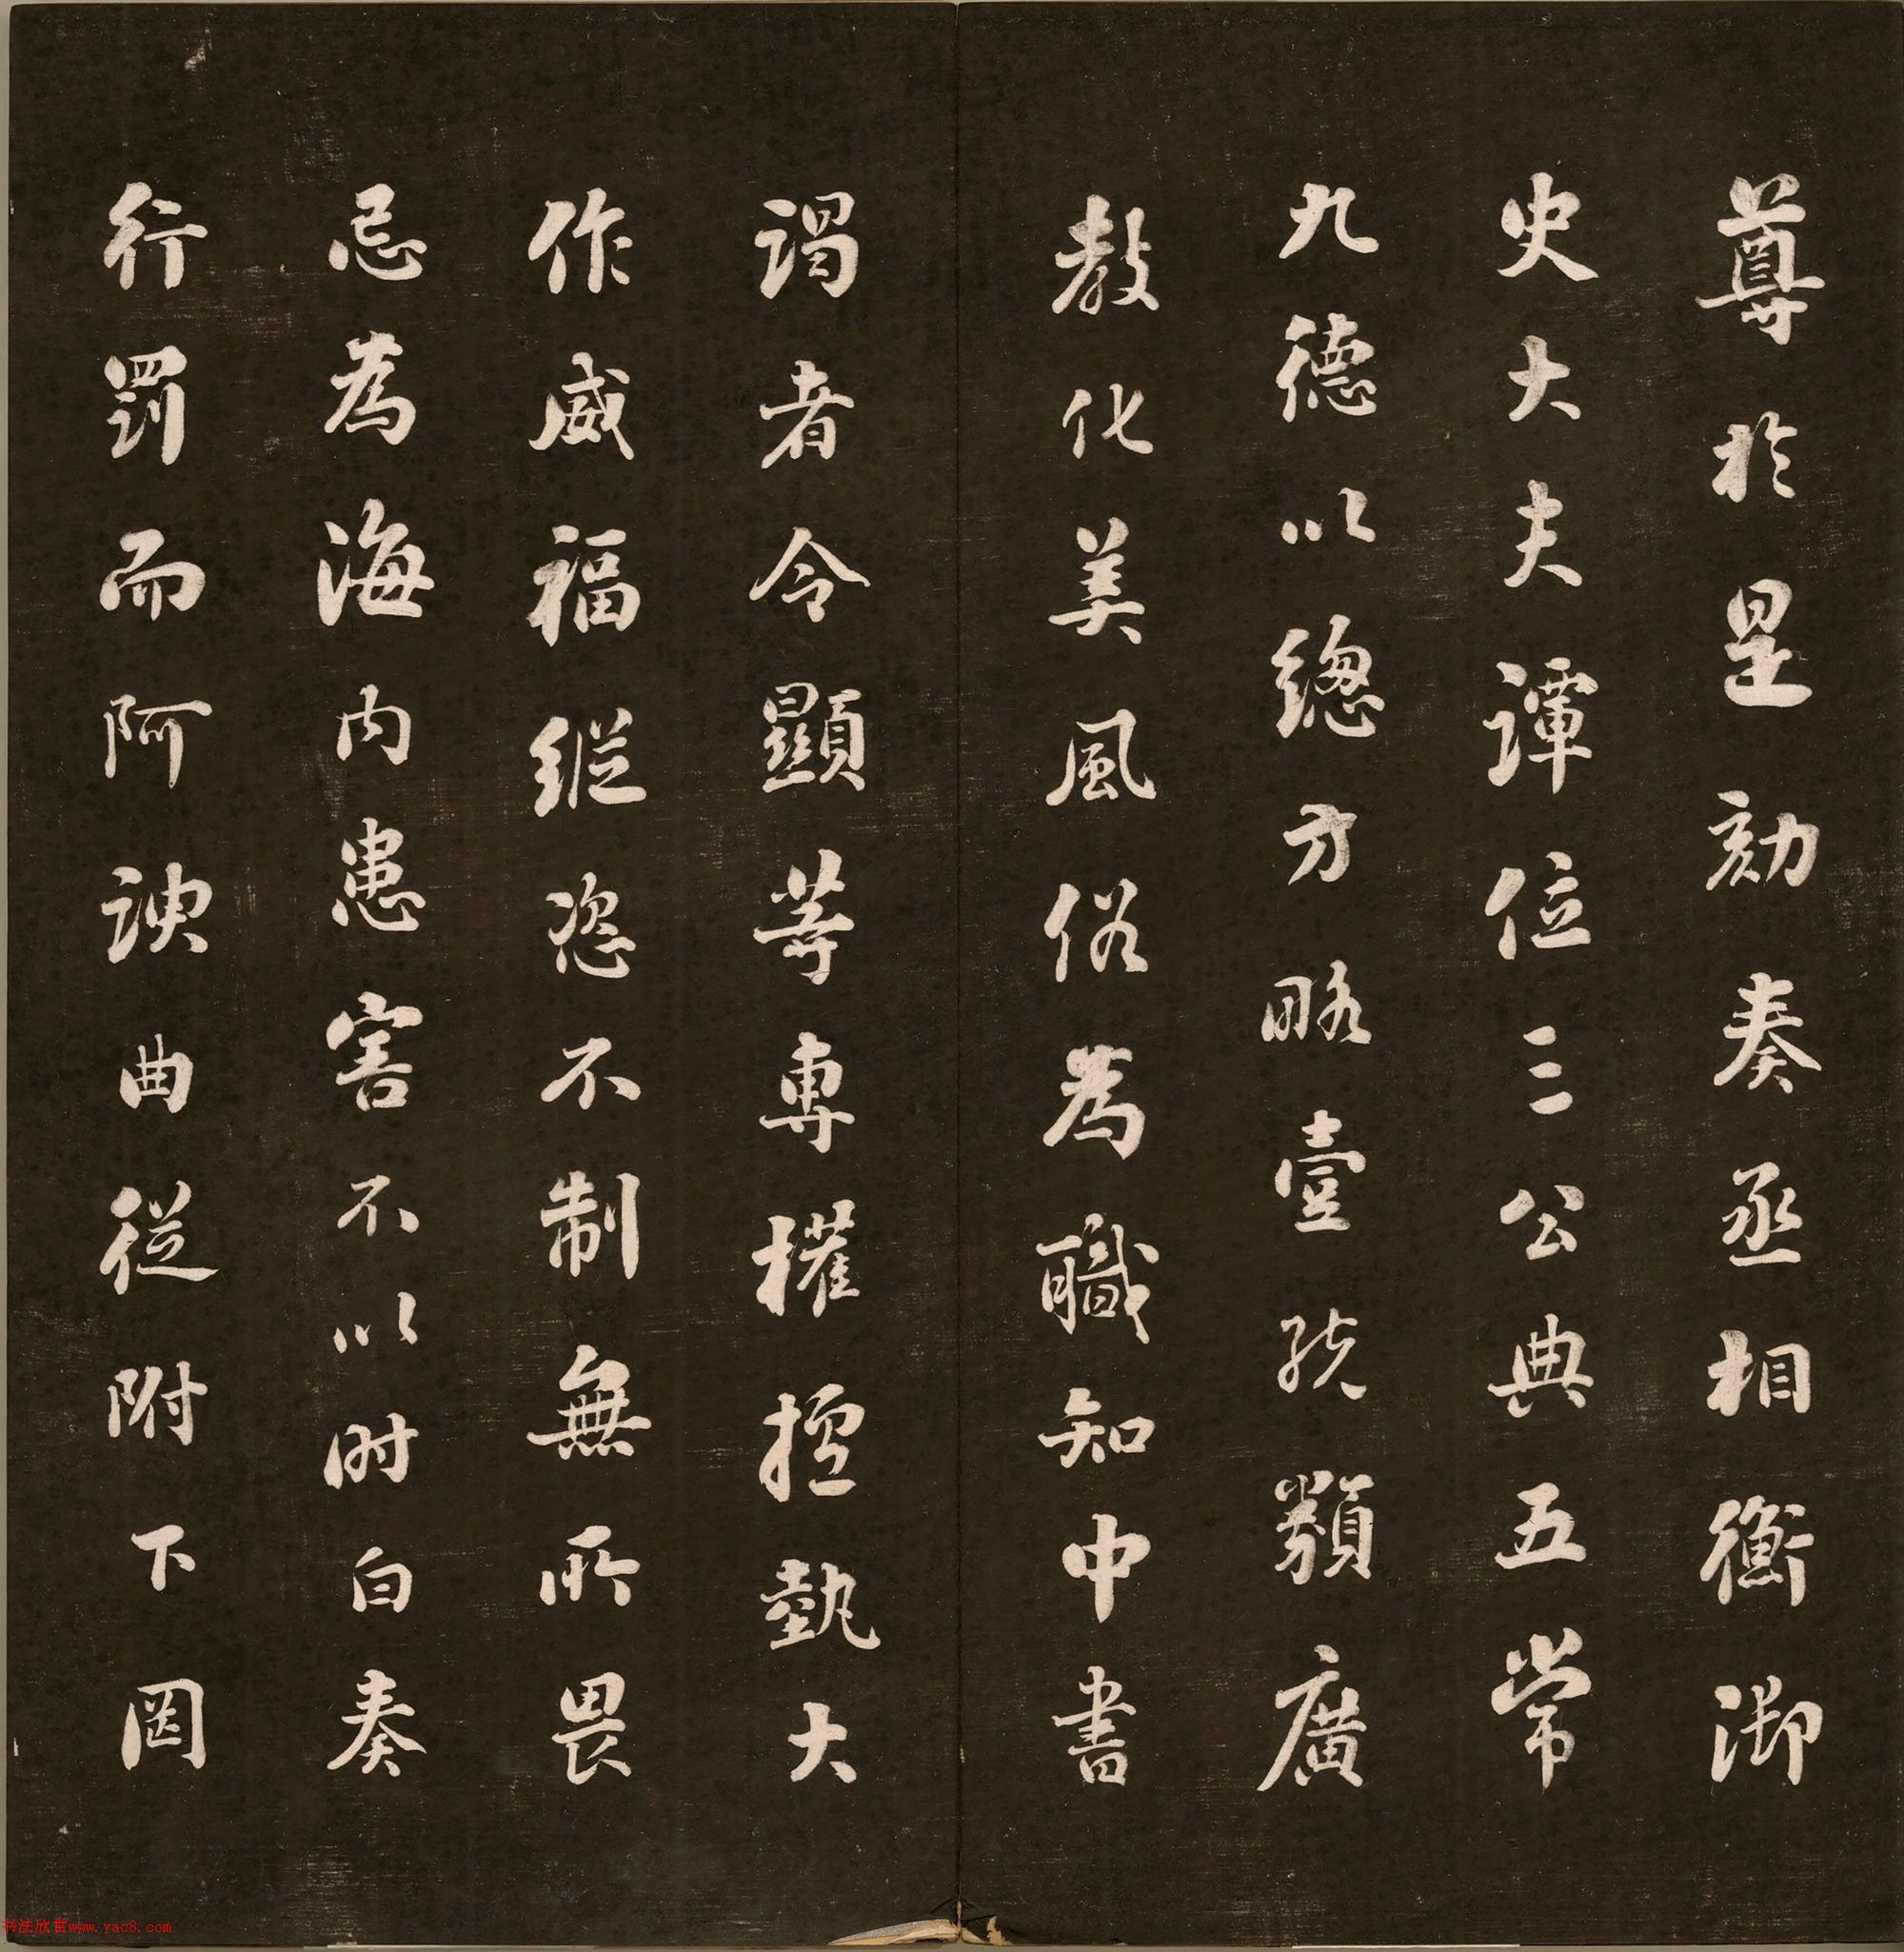 尊於是劾奏丞相衡御
史大夫譚位三公典五常
九德以總方略壹統類廣
教化美風俗為職知中書
謁者令顯等專權擅執大
作威福縱恣不制無所畏
忌為海内患害不以时白奏
行罰而阿諛曲從附下罔
书法欣赏www.yac8.com